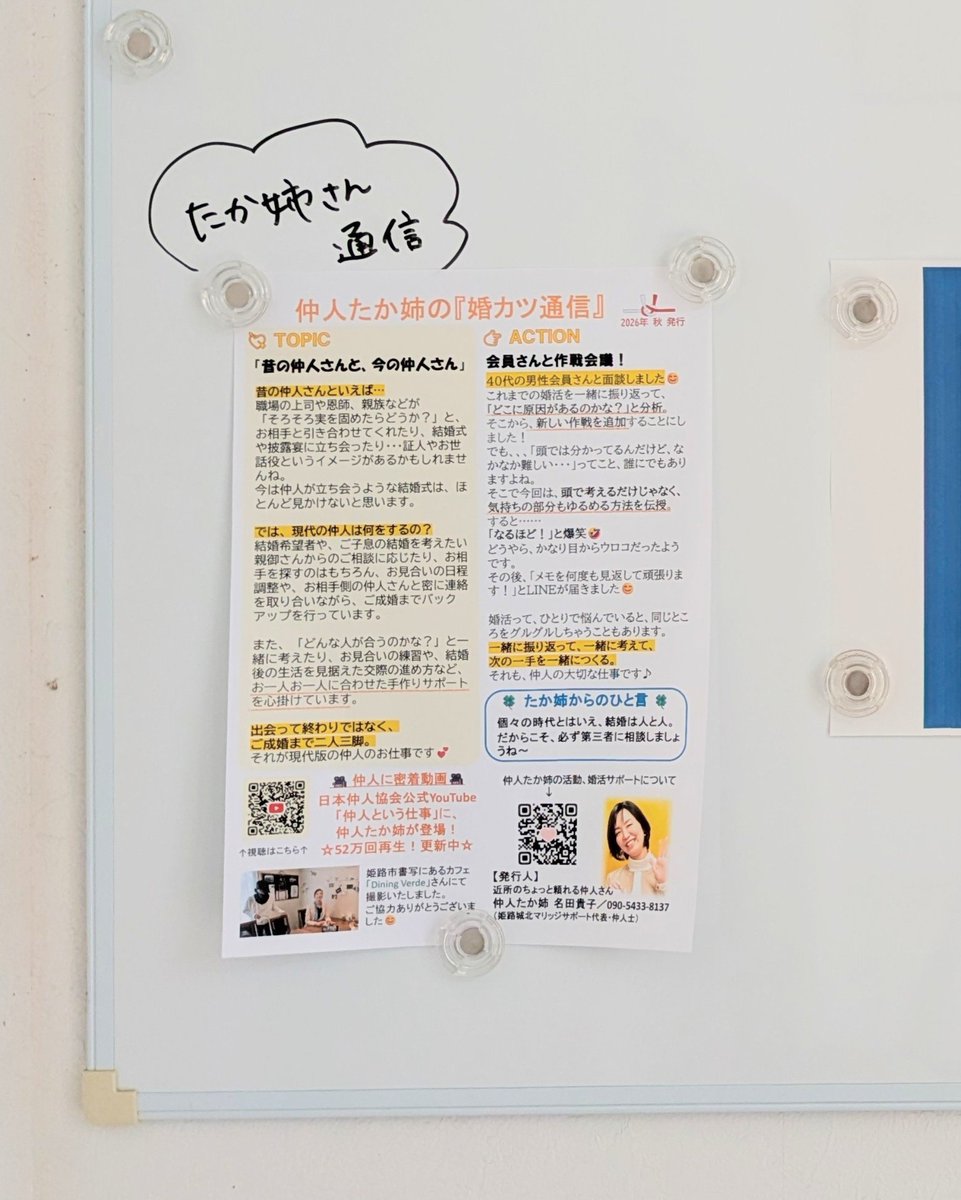 たか姉さん
通信
仲人たか姉の『婚カツ通信』
2026年 秋 発行
TOPIC
「昔の仲人さんと、今の仲人さん」
昔の仲人さんといえば…
職場の上司や恩師、親族などが
「そろそろ実を固めたらどうか？」と、
お相手と引き合わせてくれたり、結婚式
や披露宴に立ち会ったり･･･証人やお世
話役というイメージがあるかもしれませ
んね。
今は仲人が立ち会うような結婚式は、ほ
とんど見かけないと思います。
では、現代の仲人は何をするの？
結婚希望者や、ご子息の結婚を考えたい
親御さんからのご相談に応じたり、お相
手を探すのはもちろん、お見合いの日程
調整や、お相手側の仲人さんと密に連絡
を取り合いながら、ご成婚までバック
アップを行っています。
また、「どんな人が合うのかな？」と一
緒に考えたり、お見合いの練習や、結婚
後の生活を見据えた交際の進め方など、
お一人お一人に合わせた手作りサポート
を心掛けています。
出会って終わりではなく、
ご成婚まで二人三脚。
それが現代版の仲人のお仕事です💕
ACTION
会員さんと作戦会議！
40代の男性会員さんと面談しました😊
これまでの婚活を一緒に振り返って、
「どこに原因があるのかな？」と分析。
そこから、新しい作戦を追加することにし
ました！
でも、、、「頭では分かってるんだけど、な
かなか難しい･･･」ってこと、誰にでもあり
ますよね。
そこで今回は、頭で考えるだけじゃなく、
気持ちの部分もゆるめる方法を伝授。
すると……
「なるほど！」と爆笑🤣
どうやら、かなり目からウロコだったよう
です。
その後、「メモを何度も見返して頑張りま
す！」とLINEが届きました😊
婚活って、ひとりで悩んでいると、同じとこ
ろをグルグルしちゃうこともあります。
一緒に振り返って、一緒に考えて、
次の一手を一緒につくる。
それも、仲人の大切な仕事です♪
🍀 たか姉からのひと言 🍀
個々の時代とはいえ、結婚は人と人。
だからこそ、必ず第三者に相談しましょ
うね～
仲人に密着動画
日本仲人協会公式YouTube
「仲人という仕事」に、
仲人たか姉が登場！
☆52万回再生！更新中☆
↑視聴はこちら↑
姫路市書写にあるカフェ
「Dining Verde」さんにて
撮影いたしました。
ご協力ありがとうございま
した😊
仲人たか姉の活動、婚活サポートについて
↓
【発行人】
近所のちょっと頼れる仲人さん
仲人たか姉 名田貴子／090-5433-8137
（姫路城北マリッジサポート代表・仲人士）